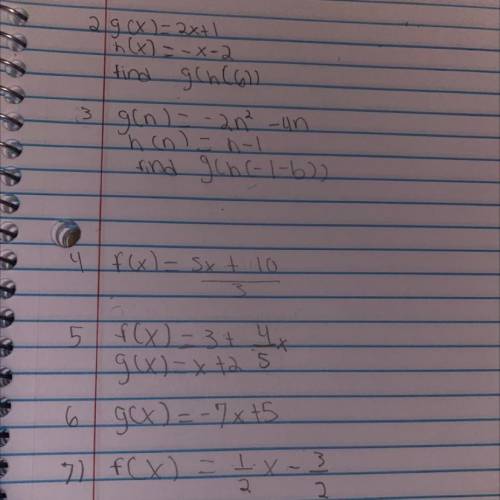 2 g(x) = 2x+1
h(x) = -x-2
find g(h(6))
3 g(n) = -2n² -4n
h(n) = n-1
find g(h(-1-b))
4 f(x) = 5x + 10
3
5 f(x) = 3+ 4/5 x
g(x) = x+2
6 g(x) = -7x+5
7) f(x) = 1/2 x - 3/2